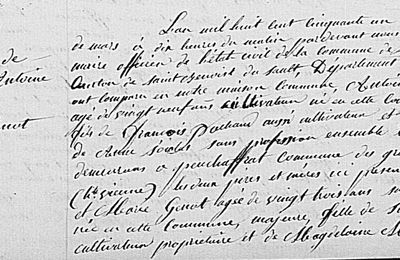 L'an mil huit cent cinquante un
de mars à dix heures du matin pardevant nous
maire officier de l'état civil de la commune de
canton de saint Benoist du Sault, Département
ont comparu en notre maison commune, Antoine
agé de vingt neuf ans cultivateur né en cette
fils de François Pochaud aussi cultivateur et
de Anne sans profession ensemble
demeurans à commune des
(hte vienne) les deux pères et mères en présence
et Marie Genot agée de vingt trois ans
née en cette commune, majeure, fille de
cultivateur propriétaire et de Magdeleine
de
Antoine